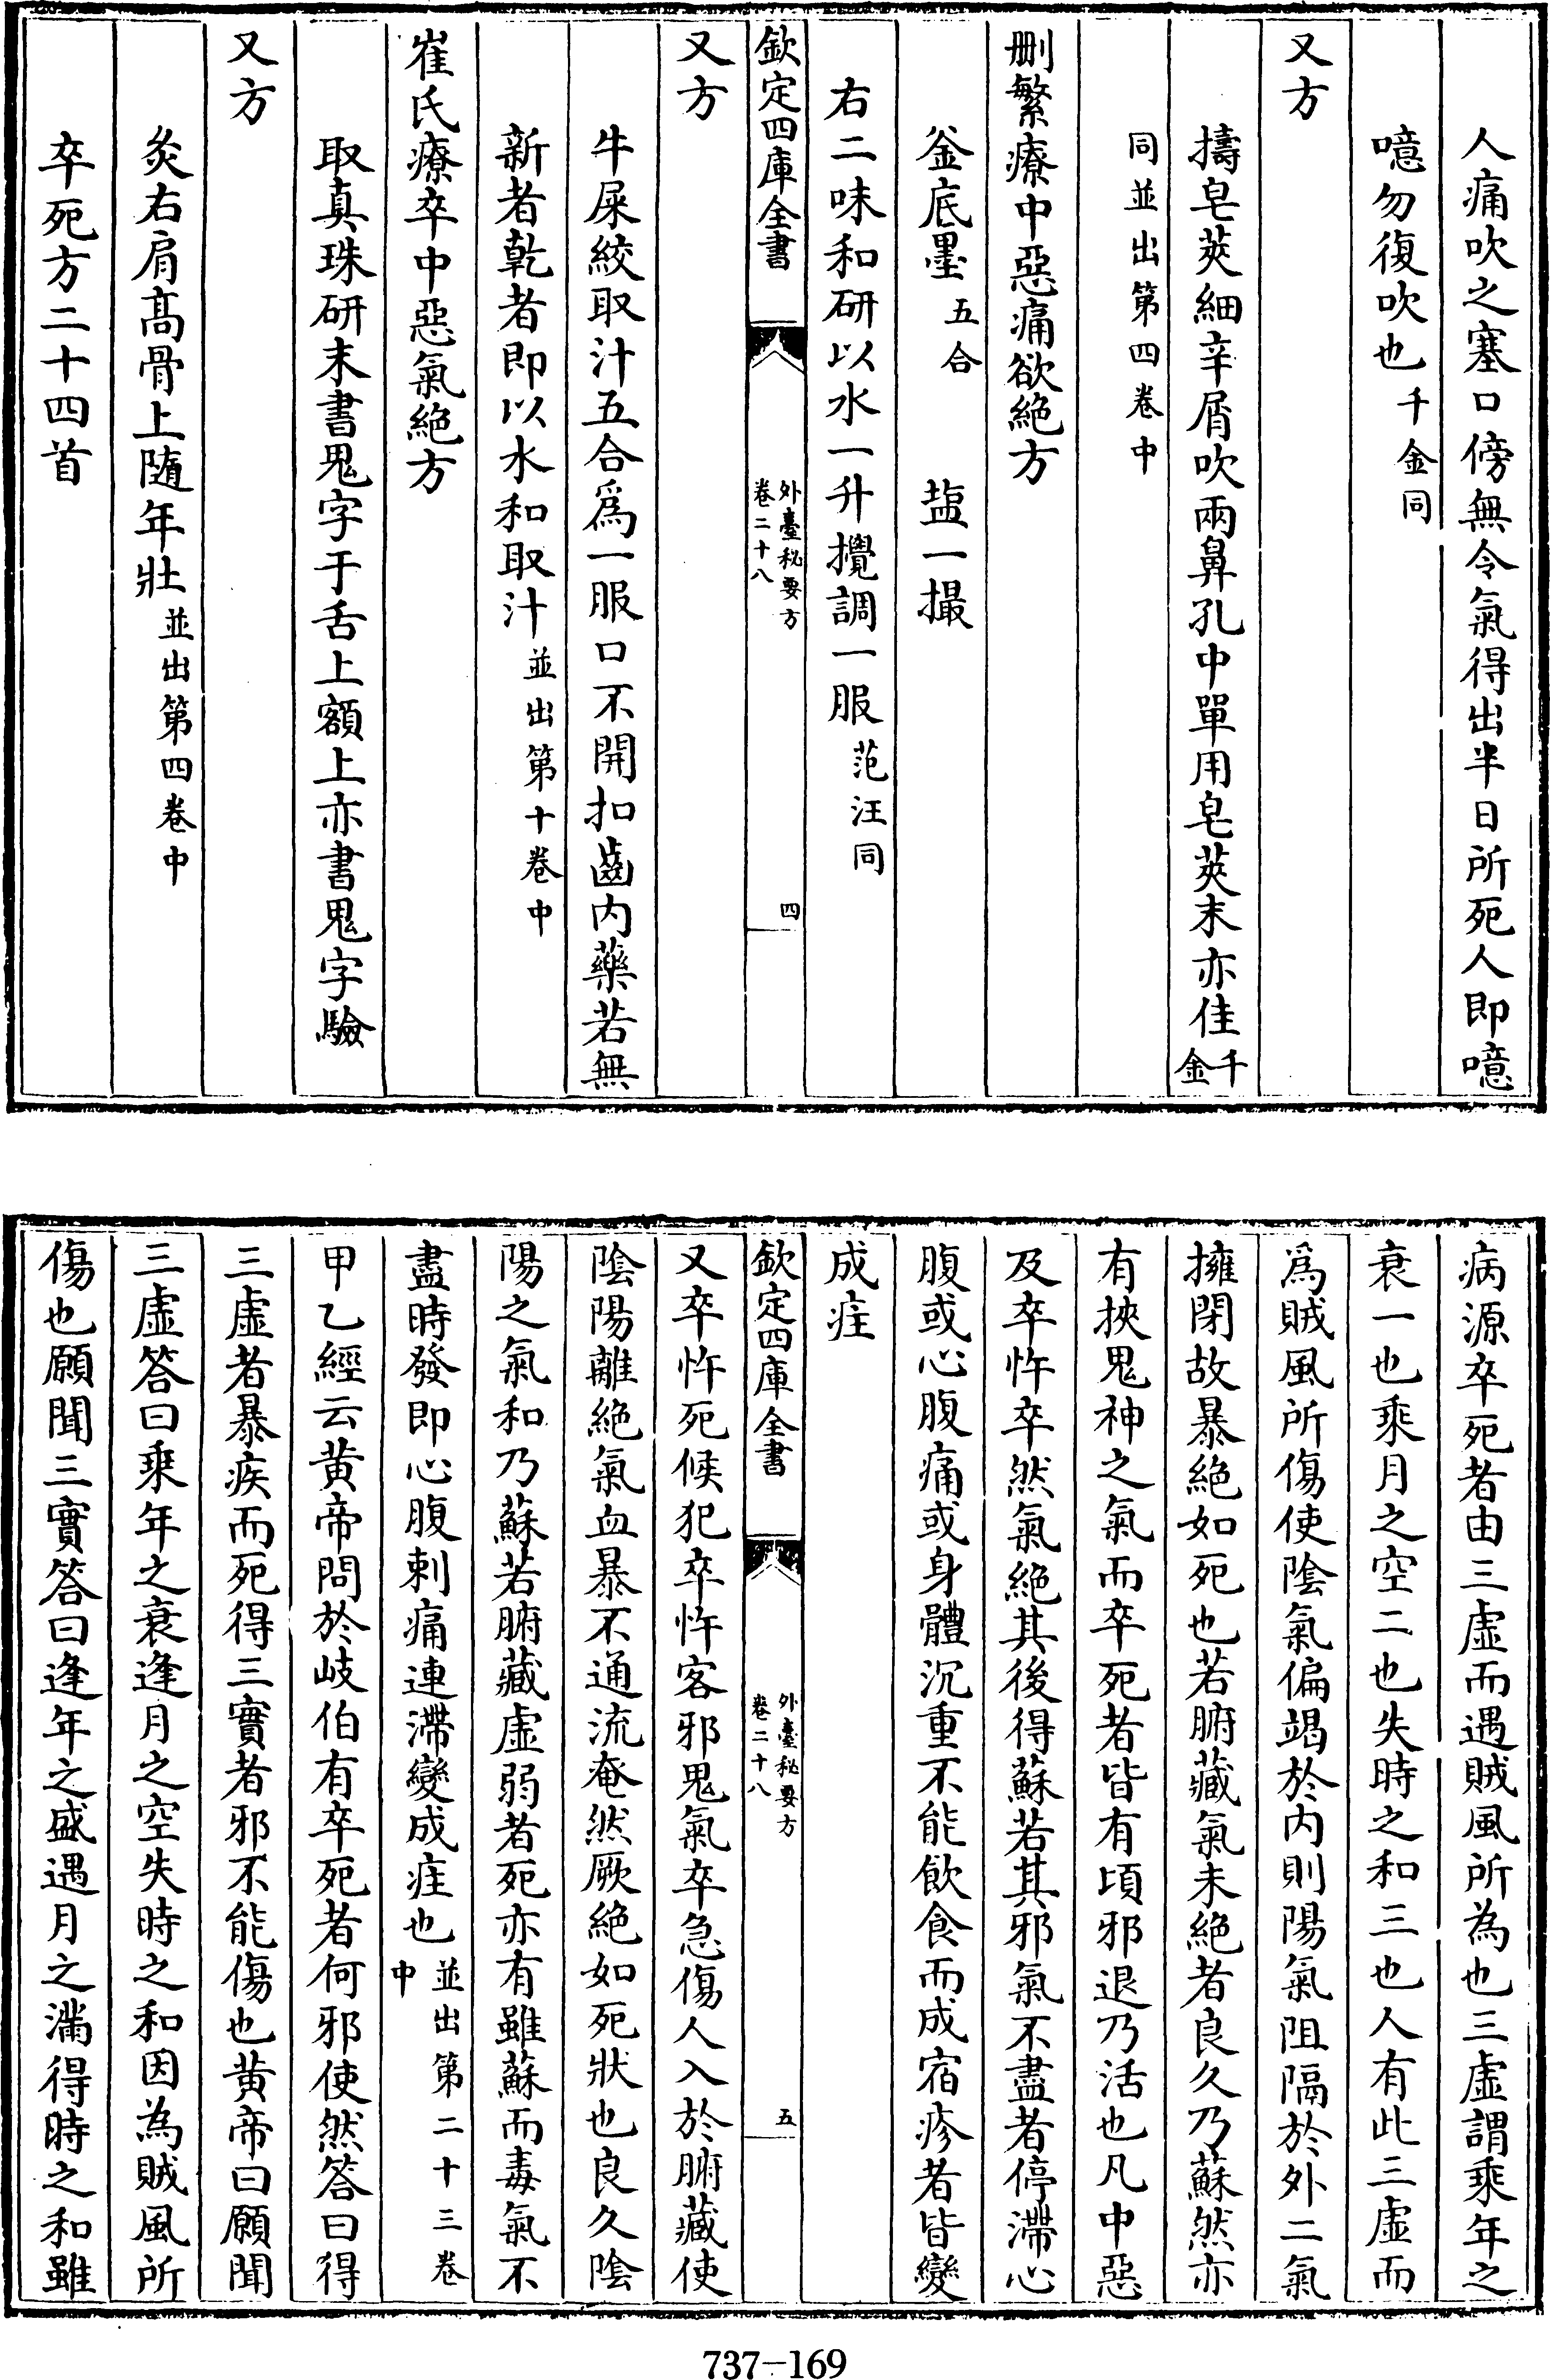 人痛吹之塞口傍無令氣得出半日所死人即噫
噫勿復吹也千金同
又方
擣皂莢細辛屑吹兩鼻孔中單用皂莢末亦佳千金
同並出第四卷中
刪繁療中惡痛欲絶方
釜底墨五合 塩一撮
右二味和研以水一升攪調一服范汪同
欽定四庫全書 外臺秘要方 卷二十八 四
又方
牛屎絞取汁五合爲一服口不開扣齒内藥若無
新者乾者即以水和取汁並出第十卷中
崔氏療卒中惡氣絶方
取真珠研末書鬼字于舌上額上亦書鬼字驗
又方
灸右肩髙骨上隨年壯並出第四卷中
卒死方二十四首
病源卒死者由三虚而遇賊風所為也三虚謂乘年之
衰一也乘月之空二也失時之和三也人有此三虚而
爲賊風所傷使陰氣偏竭於内則陽氣阻隔於外二氣
擁閉故暴絶如死也若腑藏氣未絶者良久乃蘇然亦
有挾鬼神之氣而卒死者皆有頃邪退乃活也凡中惡
及卒忤卒然氣絶其後得蘇若其邪氣不盡者停滯心
腹或心腹痛或身體沉重不能飲食而成宿疹者皆變
成疰
欽定四庫全書 外臺秘要方 卷二十八 五
又卒忤死候犯卒忤客邪鬼氣卒急傷人入於腑藏使
陰陽離絶氣血暴不通流奄然厥絶如死狀也良久陰
陽之氣和乃蘇若腑藏虚弱者死亦有雖蘇而毒氣不
盡時發即心腹刺痛連滯變成疰也並出第二十三卷中
甲乙經云黄帝問於岐伯有卒死者何邪使然答曰得
三虚者暴疾而死得三實者邪不能傷也黄帝曰願聞
三虚答曰乘年之衰逢月之空失時之和因為賊風所
傷也願聞三實答曰逢年之盛遇月之滿得時之和雖
737-169